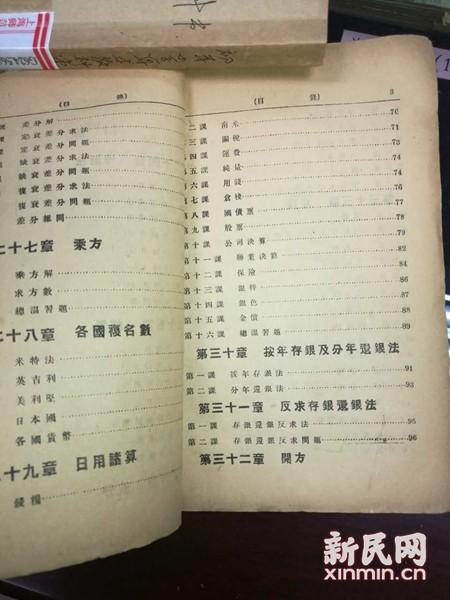 上海
(目 錄)
差分解
定衰差分求法
定衰差分問題
缺衰差分求法
缺衰差分問題
復衰差分求法
復衰差分問題
差分雜問
二十七章 乘方
乘方解
求方數
總温習題
二十八章 各國複名數
米特法
英吉利
美利堅
日本國
各國貨幣
十九章 日用諸算
錢糧
(目 錄) 3
二課 南米 70
三課 關税 71
第四課 運費 73
第五課 純量 74
第六課 用錢 74
第七課 倉棧 76
第八課 國債票 77
第九課 股票 78
第十課 公司決算 79
第十一課 聯業決算 82
第十二課 保險 84
第十三課 銀特 86
第十四課 銀色 87
第十五課 金價 88
第十六課 總温習題 89
第三十章 按年存銀及分年還銀法
第一課 按年存銀法 91
第二課 分年還銀法 93
第三十一章 反求存銀還銀法
第一課 存銀還銀反求法 95
第二課 存銀還銀反求問題 96
第三十二章 開方
新民网
xinmin.cn